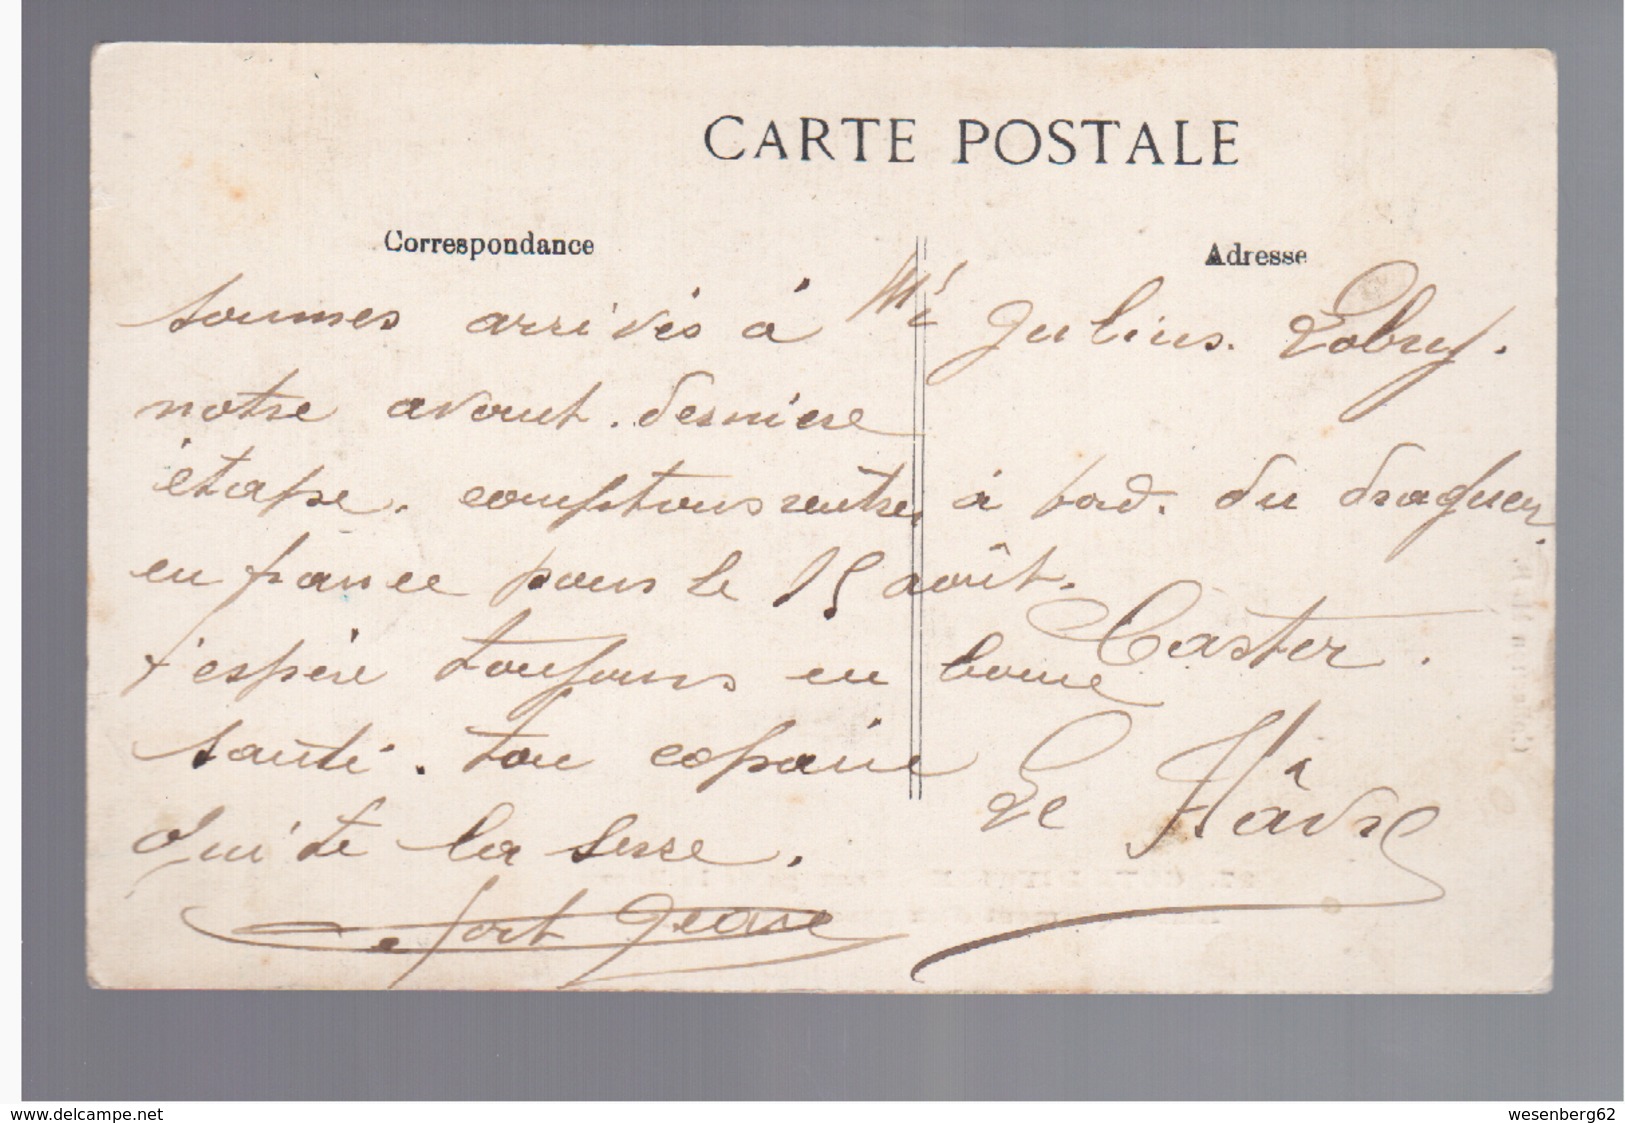 CARTE POSTALE
Correspondance
sommes arrivés à
notre avant. derniere
étape. comptons rentrer
en france pour le 15 août.
t'espère toujours en bonne
santé. ton copain
qui te la serre.
fort
Adresse
Mr Julius.
à bord. du dragueur
Caster.
Le Hâvre
www.delcampe.net
wesenberg62